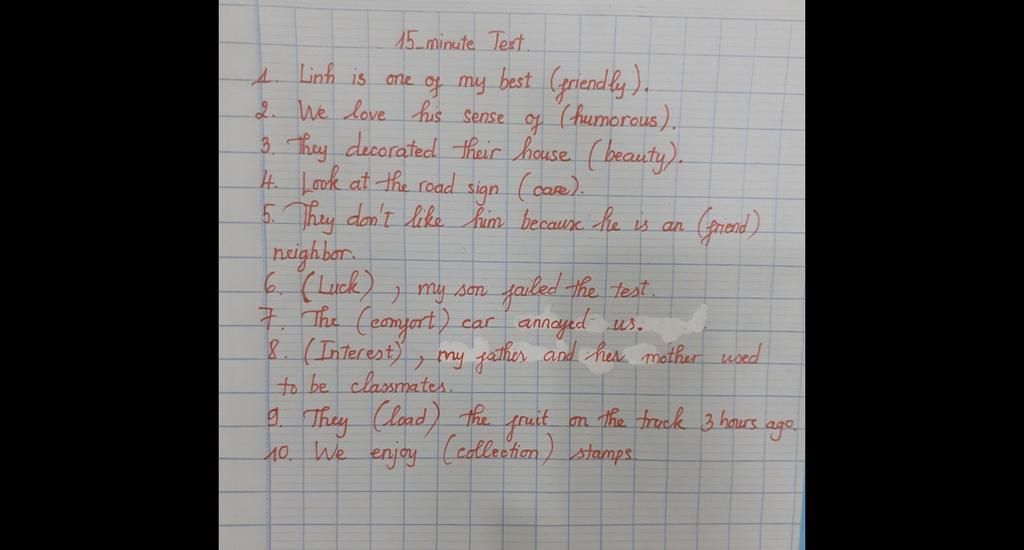 15-minute Test.
1. Linh is one of my best (friendly).
2. We love his sense of (humorous).
3. They decorated their house (beauty).
4. Look at the road sign (care).
5. They don't like him because he is an (friend)
neighbor.
6. (Luck), my son failed the test.
7. The (comfort) car annoyed us.
8. (Interest), my father and her mother used
to be classmates.
9. They (load) the fruit on the truck 3 hours ago.
10. We enjoy (collection) stamps.